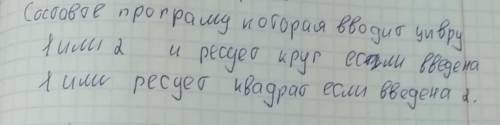 Состовое пропраму которая вводит цивру
1 или 2 и ресует круг если введена
1 или ресует квадрат если введена 2.